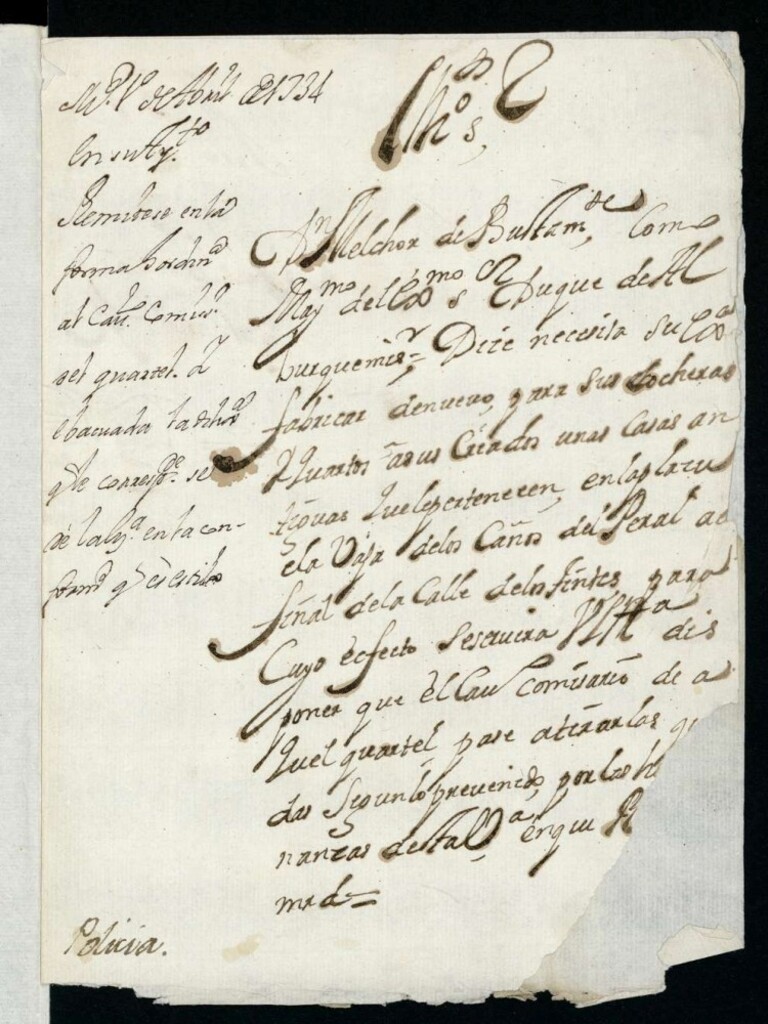 M.d 1.o de Abril de 1734
En su Ay.to
Remitese en la
forma hordin.a
al Cav. Comis.o
del quartel. Y
ebacuada la dilix.a
q.e le corresp.de se
dé la liz.a en la con-
form.d q.e es estilo
Ill.mo S.or
D.n Melchor de Bustam.te Como
May.mo del Ex.mo S.or Duque de Al
burquerque; Dice necesita Su Ex.a
fabricar de nuevo, para sus Cocheras
Y quartos a sus Criados unas Casas an
tiguas que le pertenecen, en la plazu
ela Vaja de los Caños del Peral a el
final de la Calle de los tintes para
Cuyo efecto se servira V.S. Ill.ma dis
poner que el Cav. Comisario de a
quel quartel pase a tirar las
das Segun lo prevenido, por las
nanzas de esta V.a, en que R
mrd=
Policia.